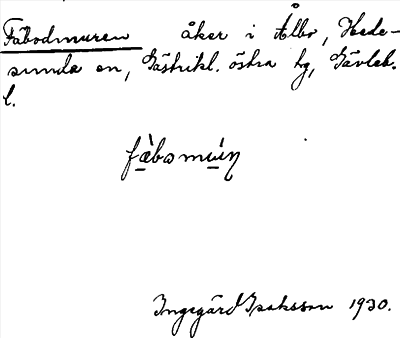 Fäbodmuren åker i Ålbo, Hede-
sunda sn, Gästrikl. östra tg, Gävleb.
l.
fä̀bomúꞟn
Ingegärd Isaksson 1930.